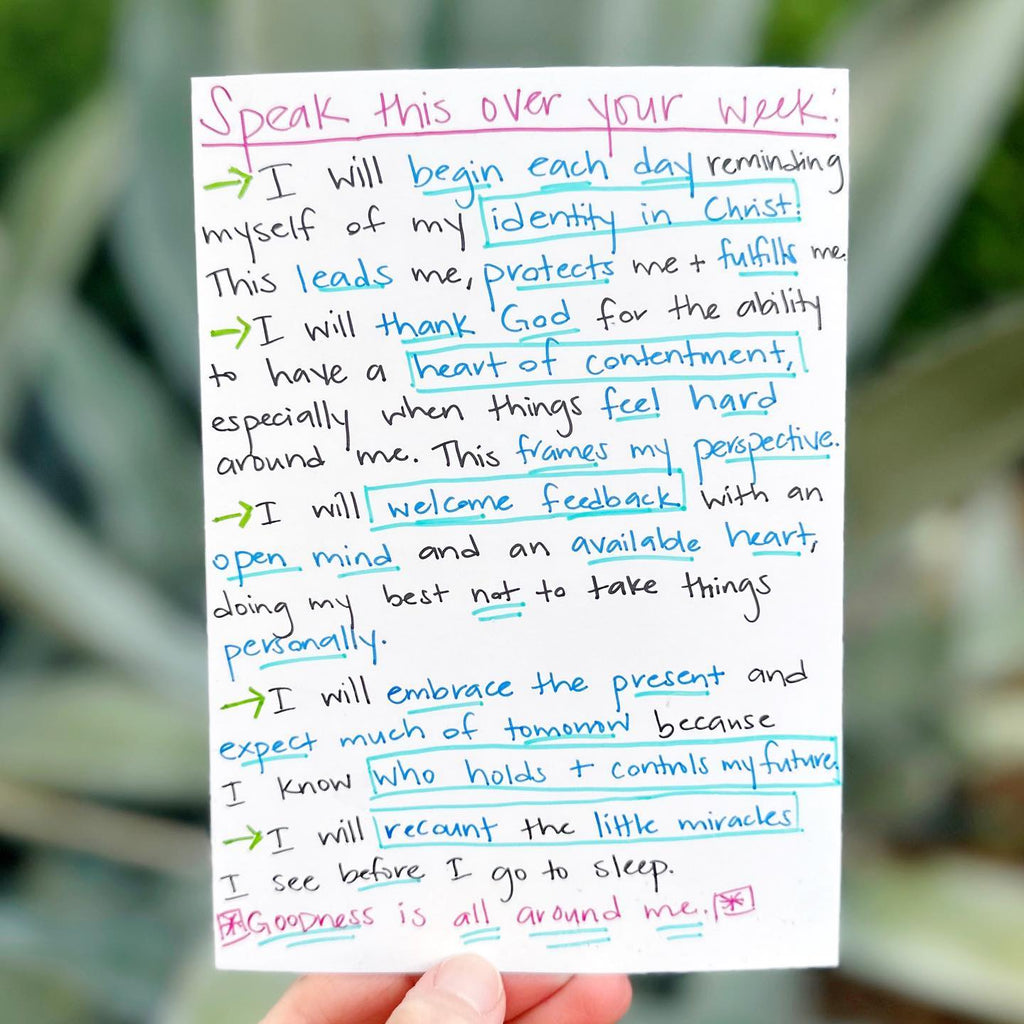 Speak this over your week:
→ I will begin each day reminding
myself of my identity in Christ.
This leads me, protects me + fulfills me.
→ I will thank God for the ability
to have a heart of contentment,
especially when things feel hard
around me. This frames my perspective.
→ I will welcome feedback with an
open mind and an available heart,
doing my best not to take things
personally.
→ I will embrace the present and
expect much of tomorrow because
I know who holds + controls my future.
→ I will recount the little miracles
I see before I go to sleep.
* Goodness is all around me. *